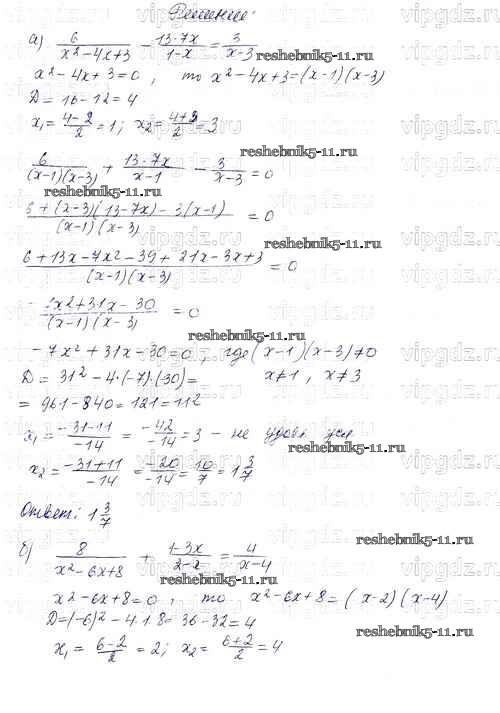 Решение:
а) 6/(x²-4x+3) - (13-7x)/(1-x) = 3/(x-3)
reshebnik5-11.ru
x²-4x+3=0, то x²-4x+3=(x-1)(x-3)
D=16-12=4
x₁=(4-2)/2=1; x₂=(4+2)/2=3
reshebnik5-11.ru
6/((x-1)(x-3)) + (13-7x)/(x-1) - 3/(x-3) = 0
reshebnik5-11.ru
+(x-3)(13-7x)-3(x-1)/((x-1)(x-3)) = 0
reshebnik5-11.ru
(6+13x-7x²-39+21x-3x+3)/((x-1)(x-3)) = 0
reshebnik5-11.ru
x²+31x-30/((x-1)(x-3)) = 0
reshebnik5-11.ru
-7x²+31x-30=0, где (x-1)(x-3)≠0
D=31²-4·(-7)·(-30)= x≠1, x≠3
=961-840=121=11²
x₁=(-31-11)/-14=-42/-14=3 - не удовл. усл.
reshebnik5-11.ru
x₂=(-31+11)/-14=-20/-14=10/7=1 3/7
Ответ: 1 3/7
reshebnik5-11.ru
б) 8/(x²-6x+8) + (1-3x)/(2-x) = 4/(x-4)
reshebnik5-11.ru
x²-6x+8=0, то x²-6x+8=(x-2)(x-4)
D=(-6)²-4·1·8=36-32=4
reshebnik5-11.ru
x₁=(6-2)/2=2; x₂=(6+2)/2=4